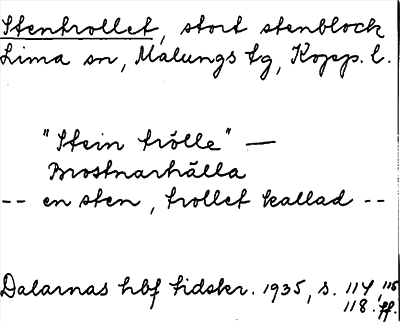 Stentrollet, stort stenblock
Lima sn, Malungs tg, Kopp. l.
"Stein trölle" —
Brostnarhälla
-- en sten, trollet kallad --
Dalarnas hbf tidskr. 1935, s. 114, 115
118. ff.